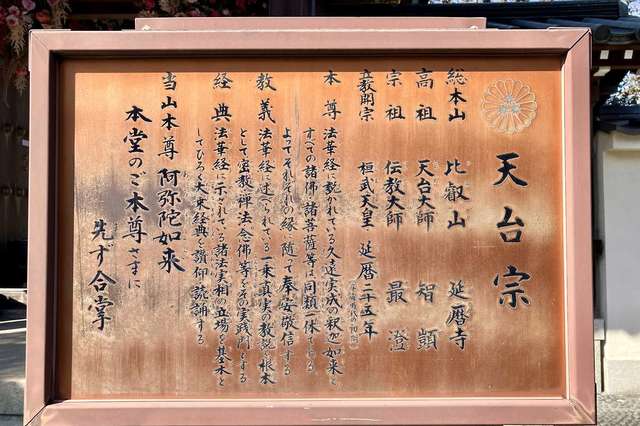 天台宗
総本山 比叡山 延暦寺
高祖 天台大師 智顗
宗祖 伝教大師 最澄
立教開宗 桓武天皇 延暦二十五年
本尊 法華経に説かれている久遠実成の釈迦如来と
すべての諸佛諸菩薩等は同類一体である
よってそれぞれの縁に随って奉安敬信する
教義 法華経に述べられている一乗真実の教説を根本
として密教 禅法 念佛 等をその実践門とする
経典 法華経に示されている諸法実相の立場を基本と
してひろく大乗経典を讃仰読誦する
当山本尊 阿弥陀如来
本堂のご本尊さまに
先ず合掌